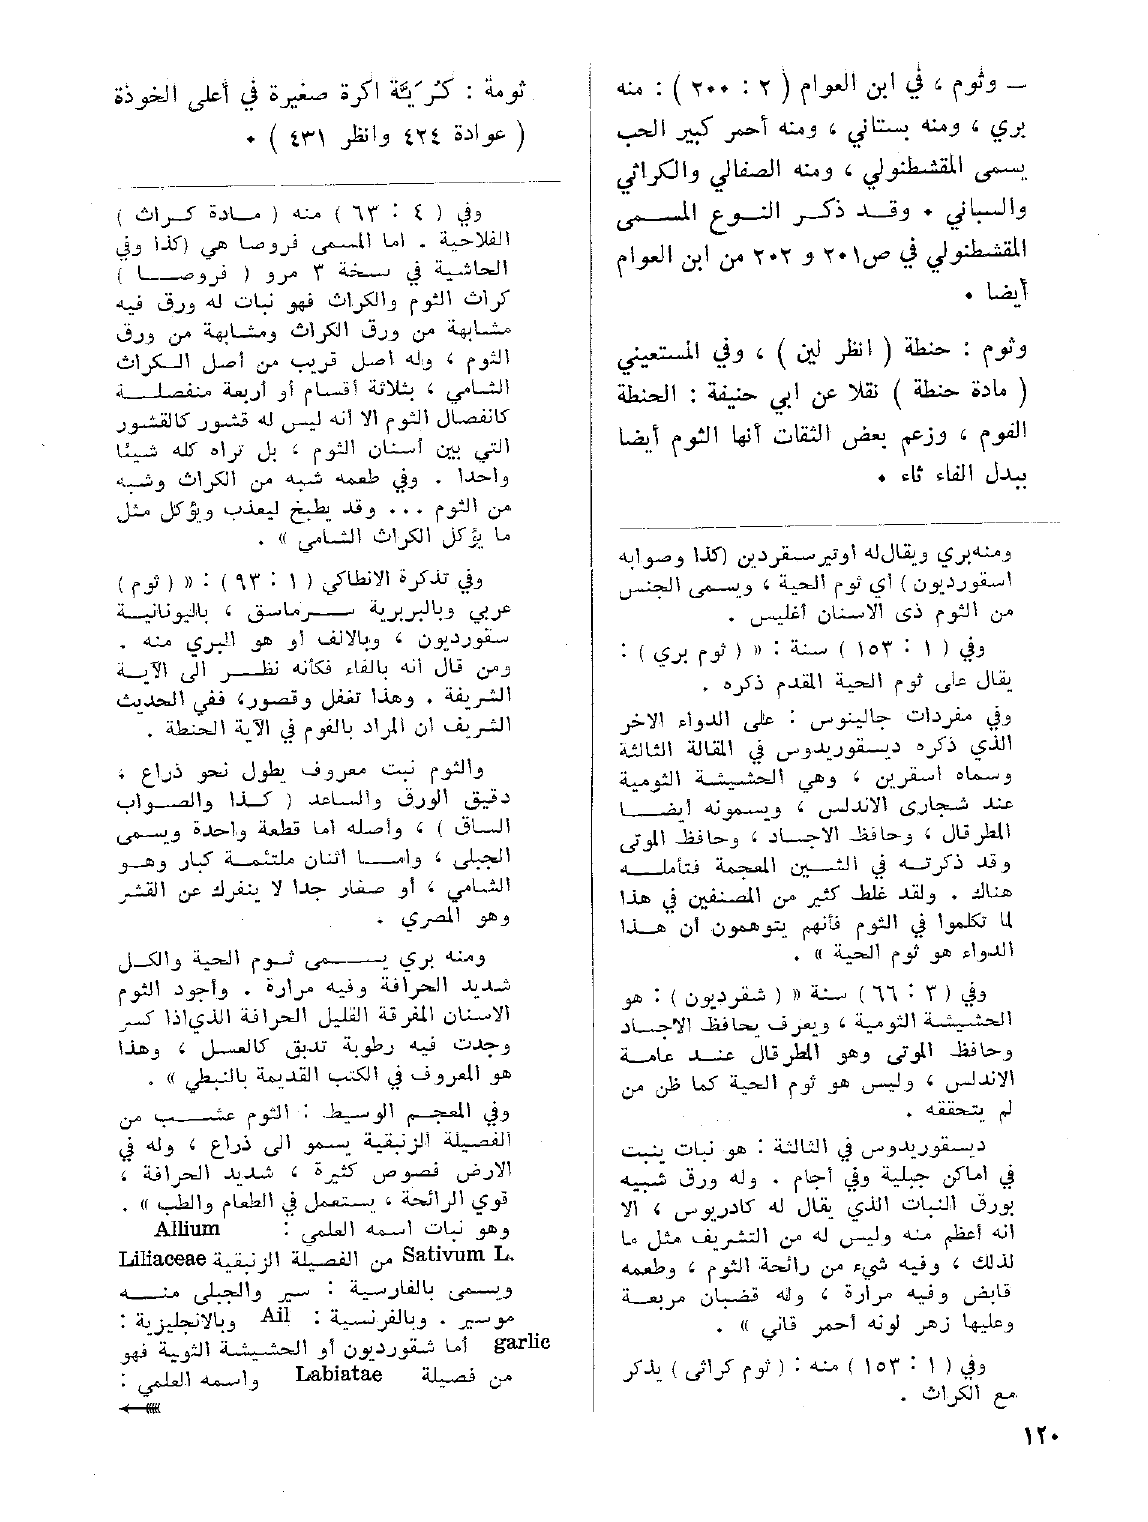 ــ وثوم ، في ابن العوام ( ٢ : ٢٠٠ ) : منه
بري ، ومنه بستاني ، ومنه أحمر كبير الحب
يسمى المقشطنولي ، ومنه الصفالي والكراثي
والسباني ٠ وقد ذكر النوع المسمى
المقشطنولي في ص٢٠١ و ٢٠٢ من ابن العوام
أيضا ٠
وثوم : حنطة ( انظر لين ) ، وفي المستعيني
( مادة حنطة ) نقلا عن ابي حنيفة : الحنطة
الفوم ، وزعم بعض الثقات أنها الثوم أيضا
ببدل الفاء ثاء ٠
ومنه بري ويقال له أوتيرسقردين (كذا وصوابه
اسقورديون) أي ثوم الحية ، ويسمى الجنس
من الثوم ذى الاسنان أغليس .
وفي ( ١ : ١٥٣ ) سنة : « ( ثوم بري ) :
يقال على ثوم الحية المقدم ذكره .
وفي مفردات جالينوس : على الدواء الاخر
الذي ذكره ديسقوريدوس في المقالة الثالثة
وسماه اسقرين ، وهي الحشيشة الثومية
عند شجاري الاندلس ، ويسمونه أيضا
المطرقال ، وحافظ الاجساد ، وحافظ الموتى
وقد ذكرته في الشين المعجمة فتأمله
هناك . ولقد غلط كثير من المصنفين في هذا
لما تكلموا في الثوم فأنهم يتوهمون أن هذا
الدواء هو ثوم الحية » .
وفي ( ٣ : ٦٦ ) سنة « ( شقرديون ) : هو
الحشيشة الثومية ، ويعرف بحافظ الاجساد
وحافظ الموتى وهو المطرقال عند عامة
الاندلس ، وليس هو ثوم الحية كما ظن من
لم يتحققه .
ديسقوريدوس في الثالثة : هو نبات ينبت
في اماكن جبلية وفي أجام . وله ورق شبيه
بورق النبات الذي يقال له كادريوس ، الا
انه أعظم منه وليس له من التشريف مثل ما
لذلك ، وفيه شيء من رائحة الثوم ، وطعمه
قابض وفيه مرارة ، وله قضبان مربعة
وعليها زهر لونه أحمر قاني » .
وفي ( ١ : ١٥٣ ) منه : ( ثوم كراثى ) يذكر
مع الكراث .
ثومة : كُرَيَّة اكرة صغيرة في أعلى الخوذة
( عوادة ٤٢٤ وانظر ٤٣١ ) ٠
وفي ( ٤ : ٦٣ ) منه ( مادة كراث )
الفلاحية . اما المسمى فروصا هي (كذا وفي
الحاشية في نسخة ٣ مرو ( فروصا )
كراث الثوم والكراث فهو نبات له ورق فيه
مشابهة من ورق الكراث ومشابهة من ورق
الثوم ، وله اصل قريب من أصل الكراث
الشامي ، بثلاثة أقسام أو أربعة منفصلة
كانفصال الثوم الا انه ليس له قشور كالقشور
التي بين أسنان الثوم ، بل تراه كله شيئا
واحدا . وفي طعمه شبه من الكراث وشبه
من الثوم ... وقد يطبخ ليعذب ويؤكل مثل
ما يؤكل الكراث الشامي » .
وفي تذكرة الانطاكي ( ١ : ٩٣ ) : « (ثوم)
عربي وبالبربرية سرماسق ، باليونانية
سقورديون ، وبالالف أو هو البري منه .
ومن قال انه بالفاء فكأنه نظر الى الآية
الشريفة . وهذا تغفل وقصور، ففي الحديث
الشريف ان المراد بالفوم في الآية الحنطة .
والثوم نبت معروف يطول نحو ذراع ،
دقيق الورق والساعد ( كذا والصواب
الساق ) ، وأصله اما قطعة واحدة ويسمى
الجبلى ، واما اثنان ملتئمة كبار وهو
الشامي ، أو صفار جدا لا ينفرك عن القشر
وهو المصري .
ومنه بري يسمى ثوم الحية والكل
شديد الحرافة وفيه مرارة . وأجود الثوم
الاسنان المفرقة القليل الحرافة الذي اذا كسر
وجدت فيه رطوبة تدبق كالعسل ، وهذا
هو المعروف في الكتب القديمة بالنبطي » .
وفي المعجم الوسيط : الثوم عشب من
الفصيلة الزنبقية يسمو الى ذراع ، وله في
الارض فصوص كثيرة ، شديد الحرافة ،
قوي الرائحة ، يستعمل في الطعام والطب » .
وهو نبات اسمه العلمي : Allium
Sativum L. من الفصيلة الزنبقية Liliaceae
ويسمى بالفارسية : سير والجبلى منه
موسير . وبالفرنسية : Ail وبالانجليزية :
garlic أما شقورديون أو الحشيشة الثوية فهو
من فصيلة Labiatae واسمه العلمي :
١٢٠